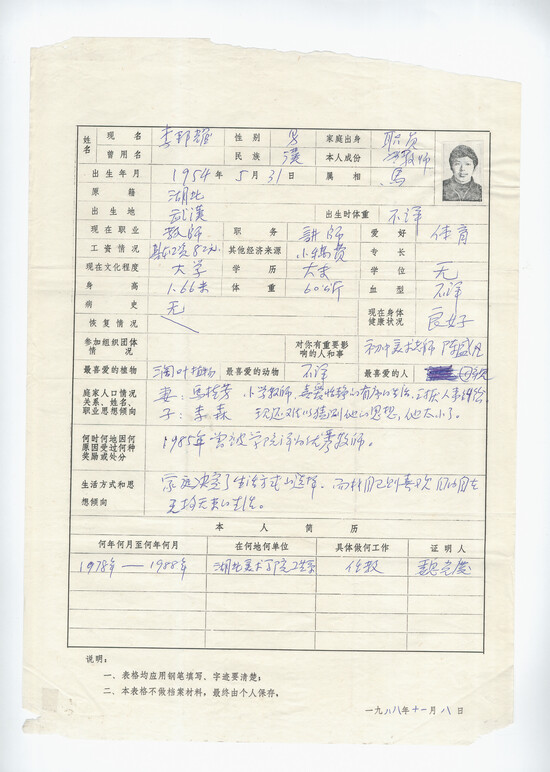 姓名 现名 李邦耀 性别 男 家庭出身 职员
曾用名 民族 汉 本人成份 教师
出生年月 1954年5月31日 属相 马
原籍 湖北
出生地 武汉 出生时体重 不详
现在职业 教师 职务 讲师 爱好 体育
工资情况 基础工资82元 其他经济来源 小稿费 专长
现在文化程度 大学 学历 大专 学位 无
身高 1.66米 体重 60公斤 血型 不详
病史 无 现在身体健康状况 良好
恢复情况
参加组织团体情况 对你有重要影响的人和事 初中美术老师 陈盛
最喜爱的植物 阔叶植物 最喜爱的动物 不详 最喜爱的人
庭家人口情况 妻:马桂芳 小学教师,喜爱恬静的有序的生活,
关系、姓名、职业思想倾向 子:李森 现还难以猜测他的思想,他太小了。
何时何地因何原因受过何种奖励或处分 1985年曾被学院评为优秀教师。
生活方式和思想倾向 家庭决定了生活方式的选择,而我自己则喜欢自由自在
无拘无束的生活。
本人简历
何年何月至何年何月 在何地何单位 具体做何工作 证明人
1978年——1988年 湖北美术学院工艺系 任教 魏
说明:
一、表格均应用钢笔填写、字迹要清楚;
二、本表格不做档案材料,最终由个人保存。
一九八八年十一月八日